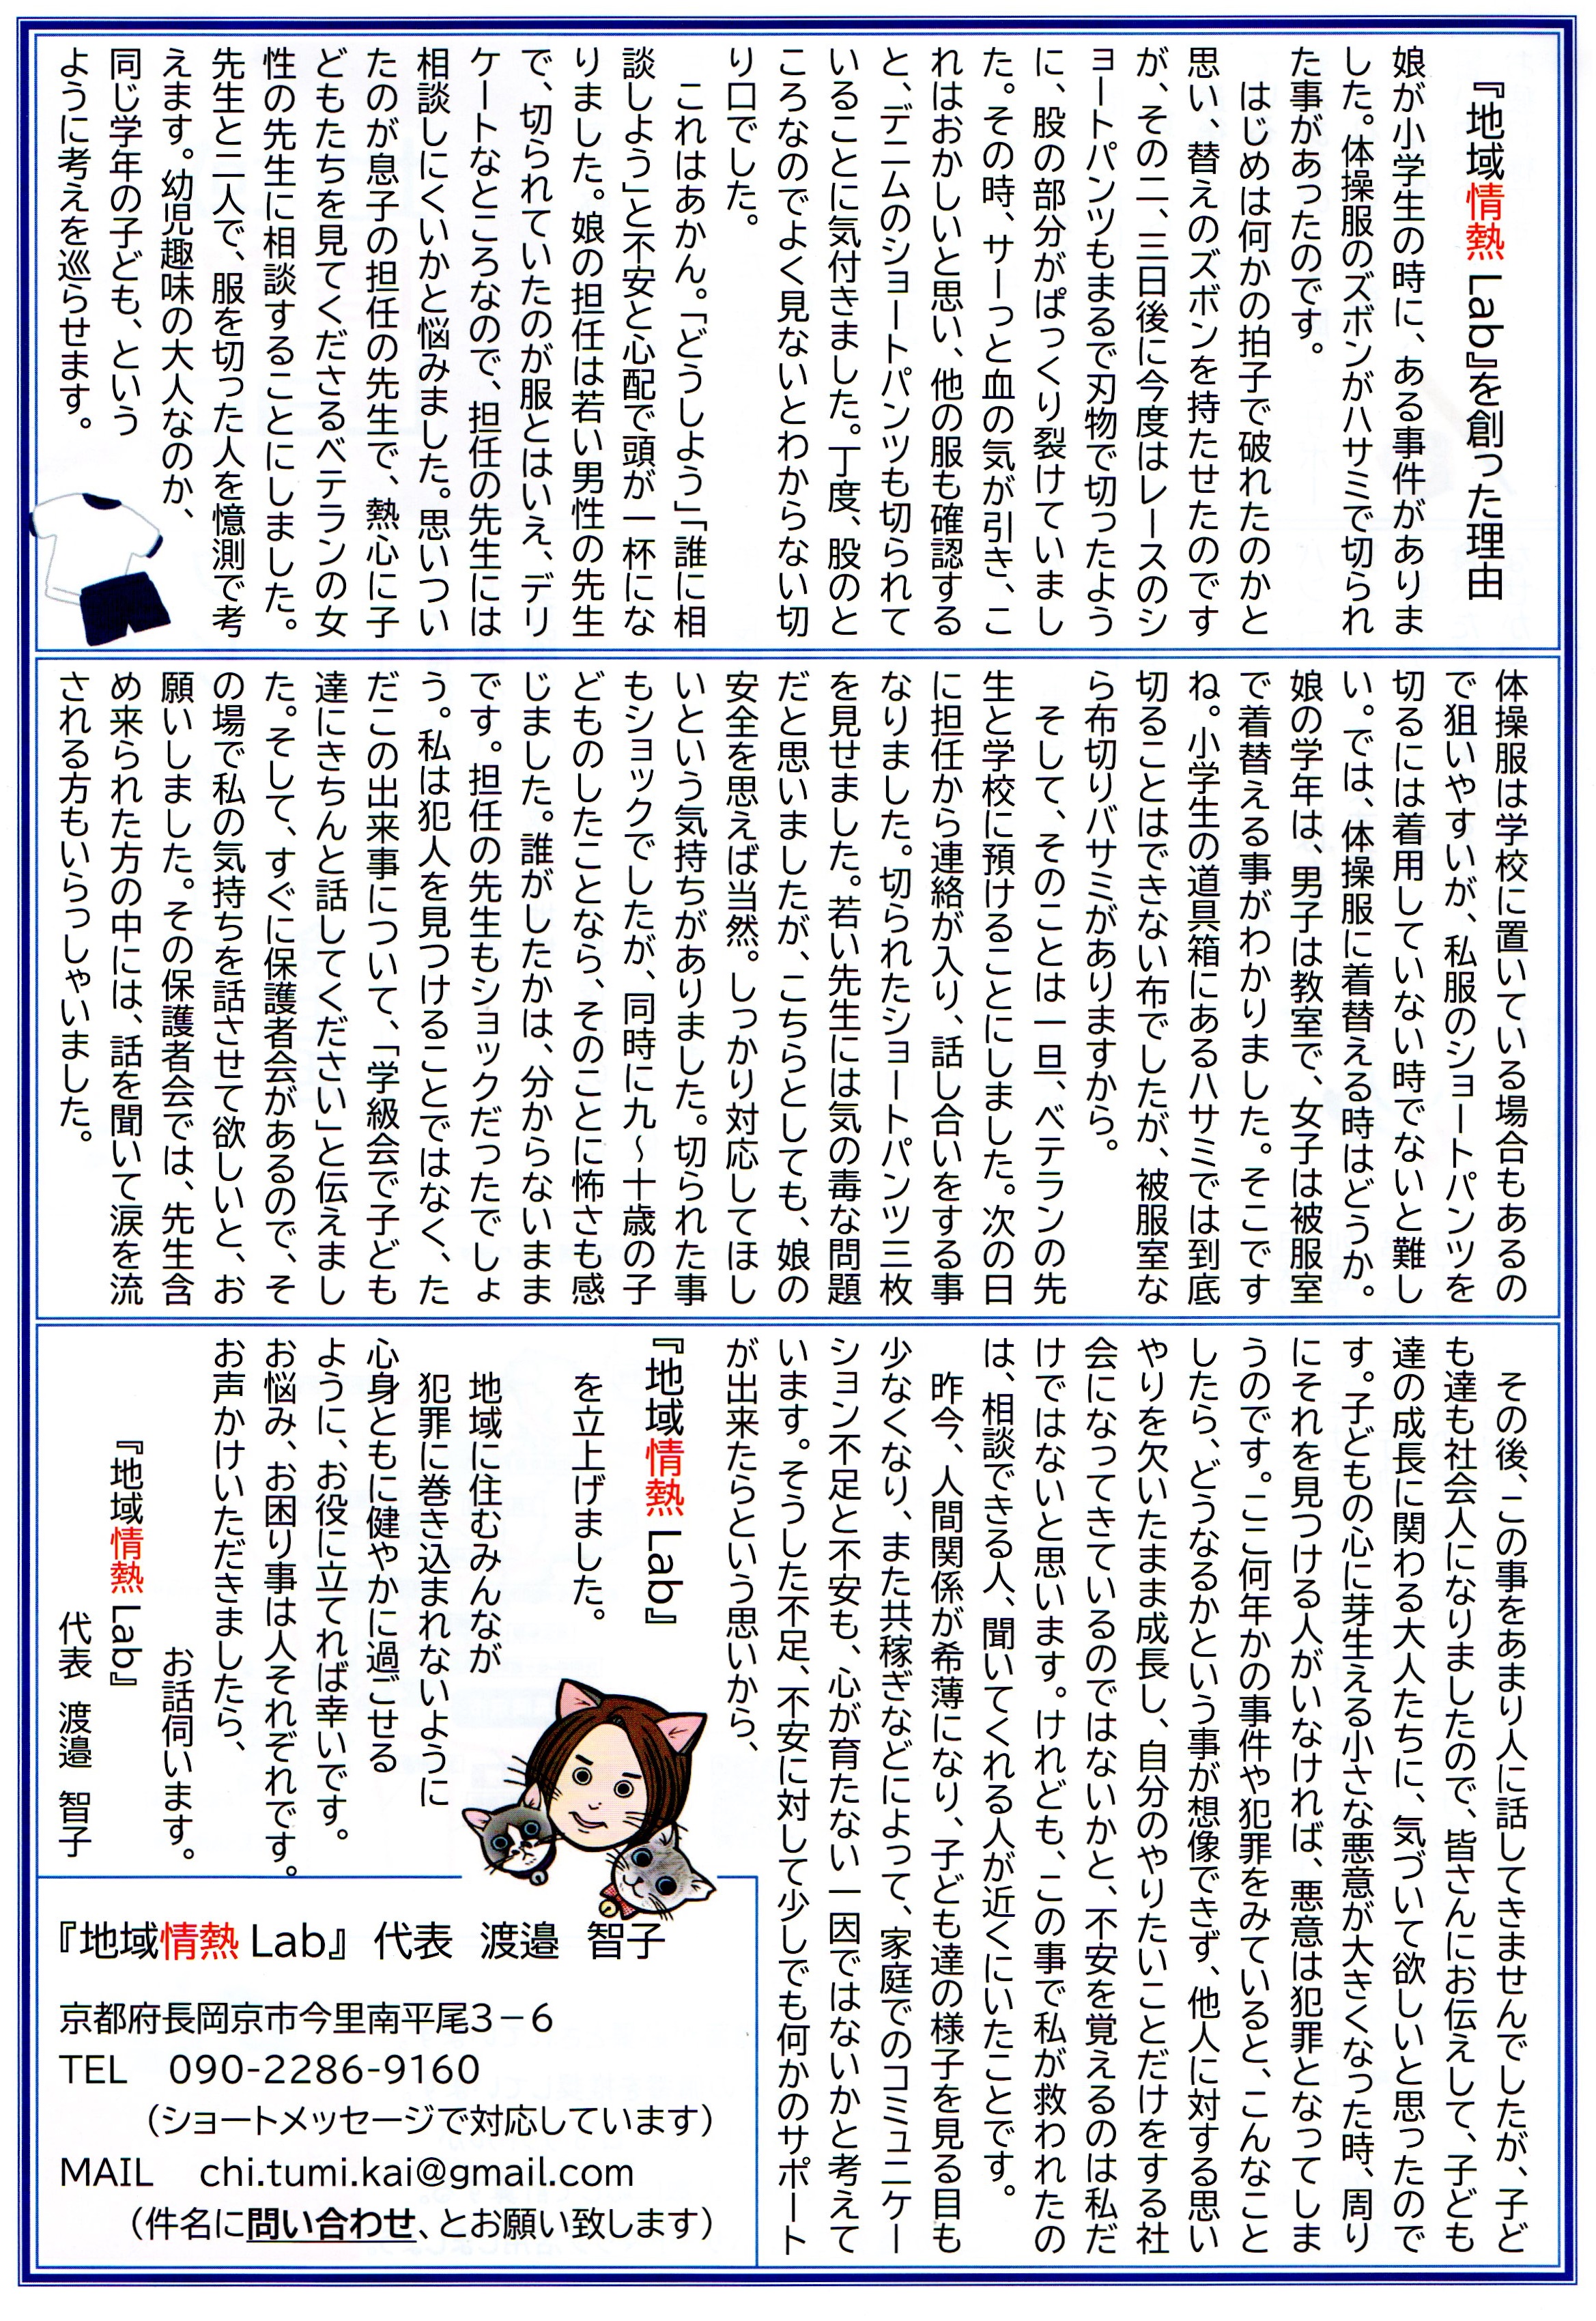 『地域情熱 Lab』を創った理由
娘が小学生の時に、ある事件がありま
した。体操服のズボンがハサミで切られ
た事があったのです。
はじめは何かの拍子で破れたのかと
思い、替えのズボンを持たせたのです
が、その二、三日後に今度はレースのシ
ョートパンツもまるで刃物で切ったよう
に、股の部分がぱっくり裂けていまし
た。その時、サーっと血の気が引き、こ
れはおかしいと思い、他の服も確認する
と、デニムのショートパンツも切られて
いることに気付きました。丁度、股のと
ころなのでよく見ないとわからない切
り口でした。
これはあかん。「どうしよう」「誰に相
談しよう」と不安と心配で頭が一杯にな
りました。娘の担任は若い男性の先生
で、切られていたのが服とはいえ、デリ
ケートなところなので、担任の先生には
相談しにくいかと悩みました。思いつい
たのが息子の担任の先生で、熱心に子
どもたちを見てくださるベテランの女
性の先生に相談することにしました。
先生と二人で、服を切った人を憶測で考
えます。幼児趣味の大人なのか、
同じ学年の子ども、という
ように考えを巡らせます。
体操服は学校に置いている場合もあるの
で狙いやすいが、私服のショートパンツを
切るには着用していない時でないと難し
い。では、体操服に着替える時はどうか。
娘の学年は、男子は教室で、女子は被服室
で着替える事がわかりました。そこです
ね。小学生の道具箱にあるハサミでは到底
切ることはできない布でしたが、被服室な
ら布切りバサミがありますから。
そして、そのことは一旦、ベテランの先
生と学校に預けることにしました。次の日
に担任から連絡が入り、話し合いをする事
なりました。切られたショートパンツ三枚
を見せました。若い先生には気の毒な問題
だと思いましたが、こちらとしても、娘の
安全を思えば当然。しっかり対応してほし
いという気持ちがありました。切られた事
もショックでしたが、同時に九～十歳の子
どものしたことなら、そのことに怖さも感
じました。誰がしたかは、分からないまま
です。担任の先生もショックだったでしょ
う。私は犯人を見つけることではなく、た
だこの出来事について、「学級会で子ども
達にきちんと話してください」と伝えまし
た。そして、すぐに保護者会があるので、そ
の場で私の気持ちを話させて欲しいと、お
願いしました。その保護者会では、先生含
め来られた方の中には、話を聞いて涙を流
される方もいらっしゃいました。
その後、この事をあまり人に話してきませんでしたが、子ど
も達も社会人になりましたので、皆さんにお伝えして、子ども
達の成長に関わる大人たちに、気づいて欲しいと思ったので
す。子どもの心に芽生える小さな悪意が大きくなった時、周り
にそれを見つける人がいなければ、悪意は犯罪となってしま
うのです。ここ何年かの事件や犯罪をみていると、こんなこと
したら、どうなるかという事が想像できず、他人に対する思い
やりを欠いたまま成長し、自分のやりたいことだけをする社
会になってきているのではないかと、不安を覚えるのは私だ
けではないと思います。けれども、この事で私が救われたの
は、相談できる人、聞いてくれる人が近くにいたことです。
昨今、人間関係が希薄になり、子ども達の様子を見る目も
少なくなり、また共稼ぎなどによって、家庭でのコミュニケー
ション不足と不安も、心が育たない一因ではないかと考えて
います。そうした不足、不安に対して少しでも何かのサポート
が出来たらという思いから、
『地域情熱 Lab』
を立上げました。
地域に住むみんなが
犯罪に巻き込まれないように
心身ともに健やかに過ごせる
ように、お役に立てれば幸いです。
お悩み、お困り事は人それぞれです。
お声かけいただきましたら、
お話伺います。
『地域情熱 Lab』
代表 渡邉 智子
『地域情熱 Lab』 代表 渡邉 智子
京都府長岡京市今里南平尾3－6
TEL 090-2286-9160
（ショートメッセージで対応しています）
MAIL chi.tumi.kai@gmail.com
（件名に問い合わせ、とお願い致します）